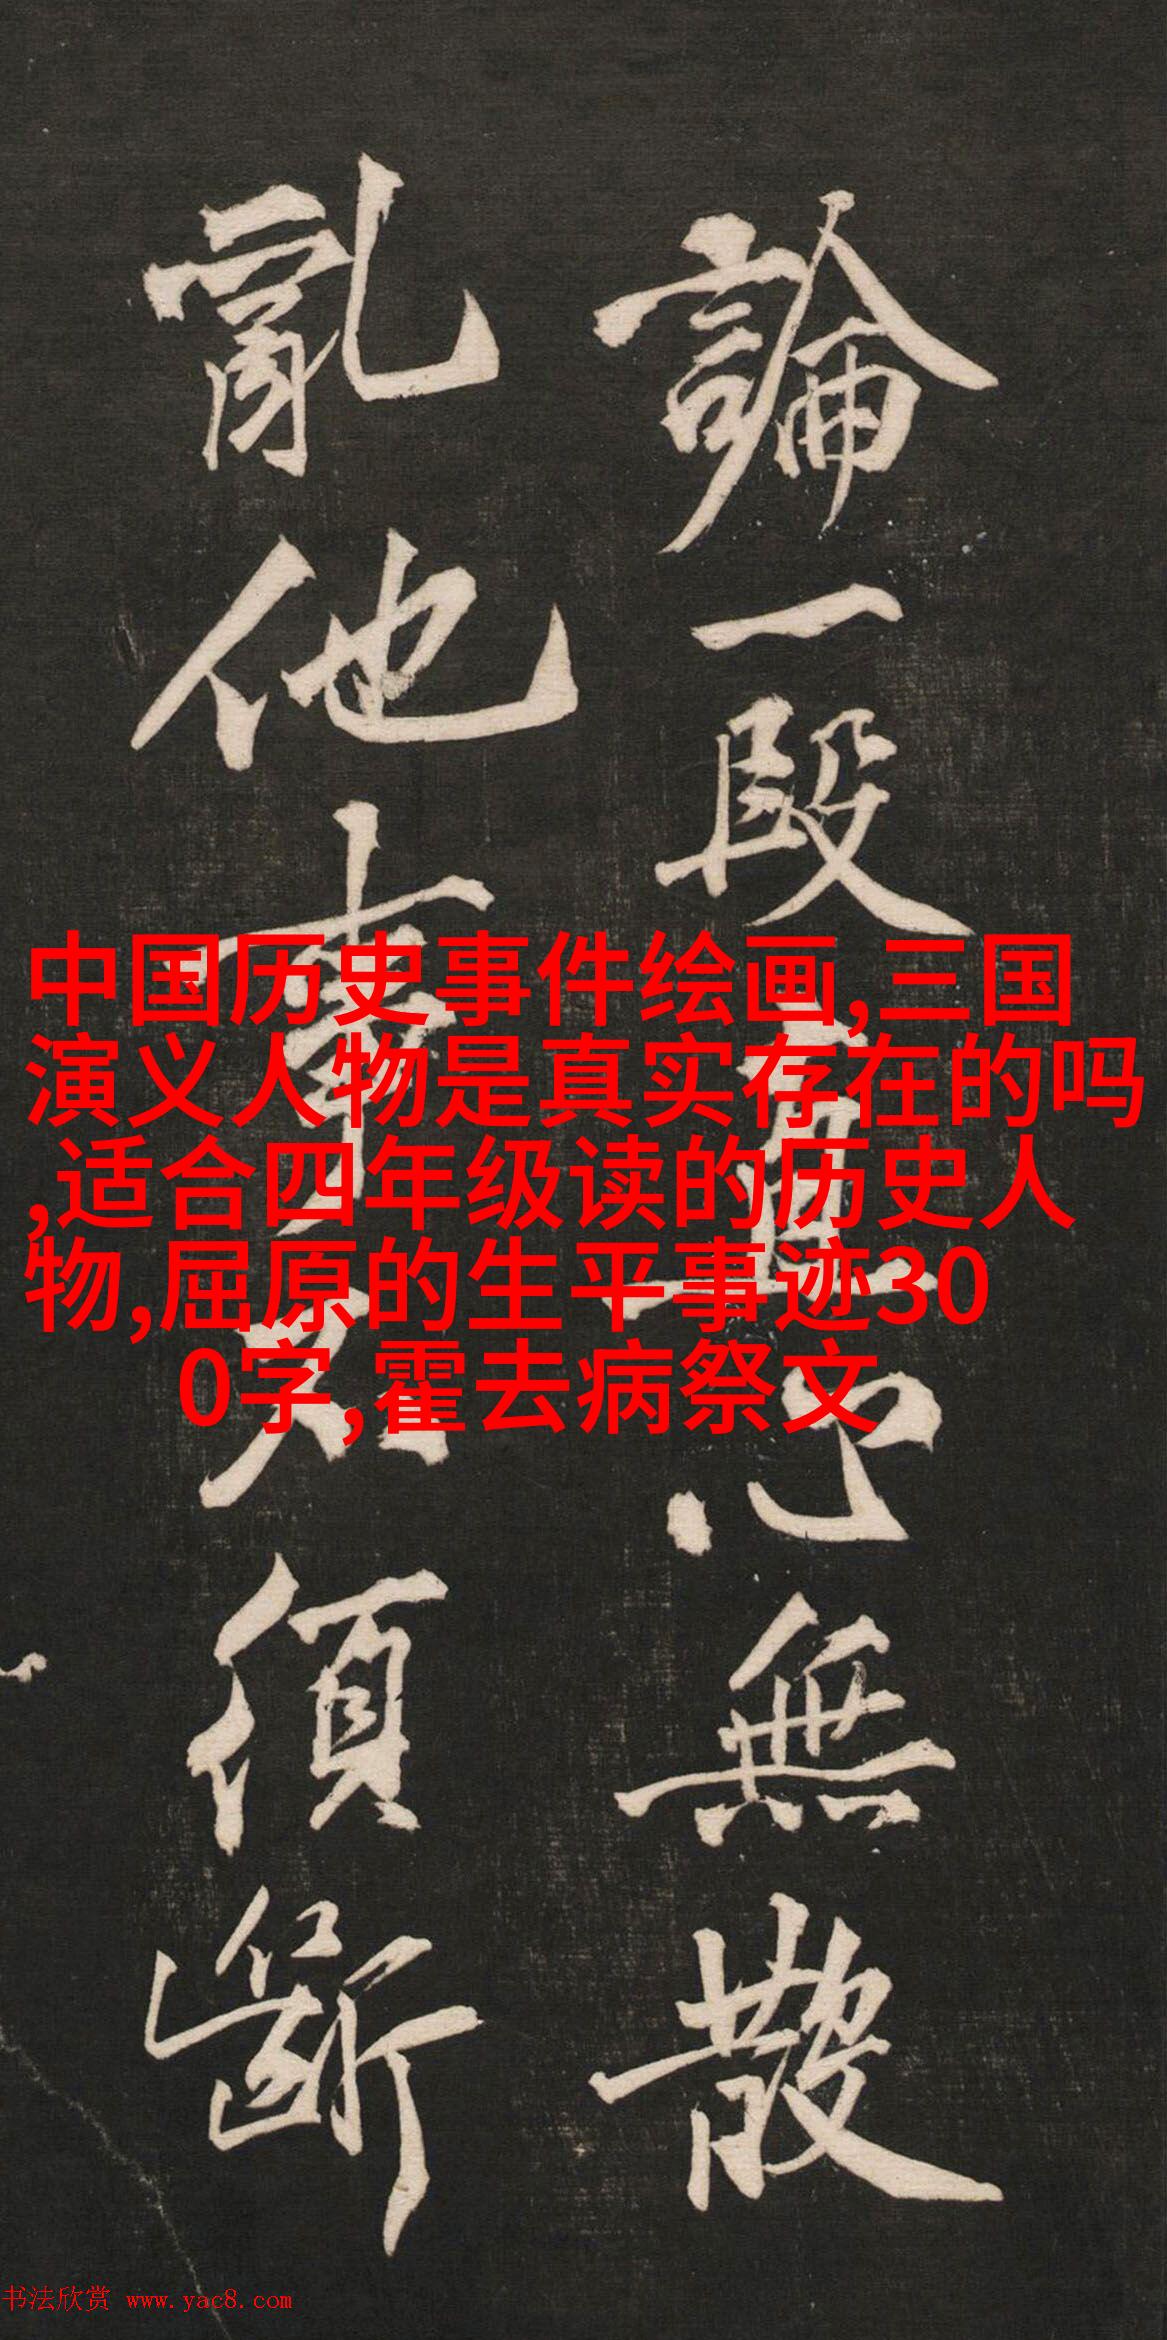 論一段直心無散
亂他事須斷
中国历史事件绘画,三国
演义人物是真实存在的吗
,适合四年级读的历史人
物,屈原的生平事迹30
0字,霍去病祭文
书法欣赏 www.yac8.com